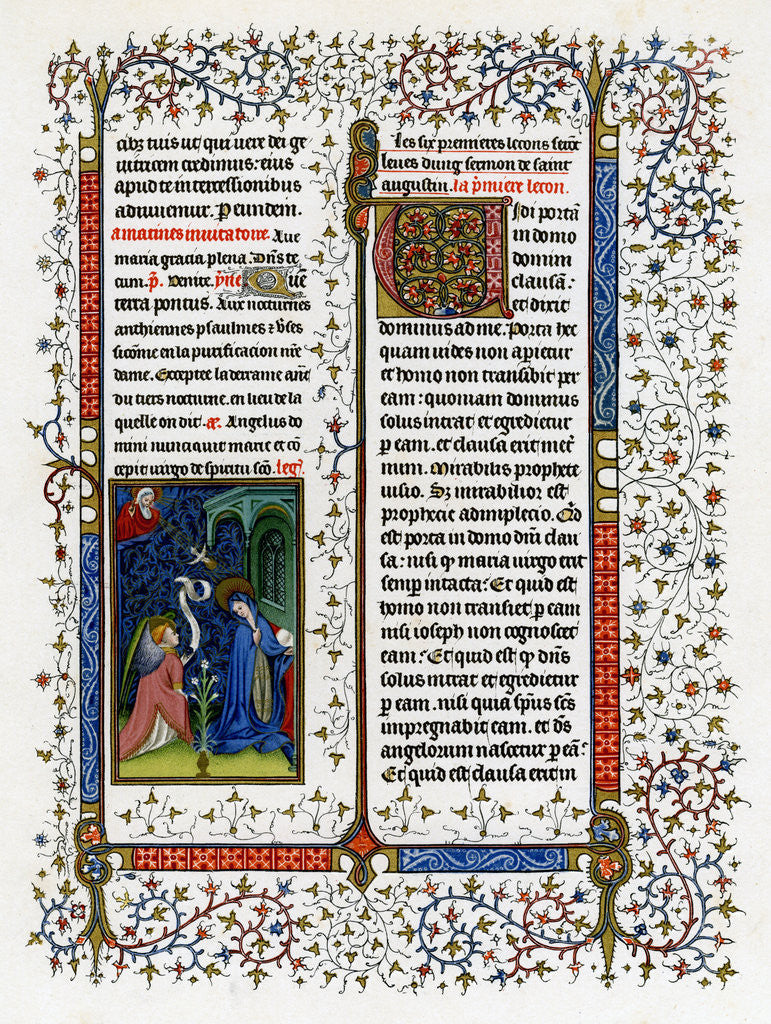 abz tuis ut qui uere dei ge
nitricem credimus: eius
apud te intercessionibus
adiuuemur. P eundem.
a matines inuitatoire. Aue
maria gracia plena: Dn̄s te
cum. p̄. Venite. yn̄e Quē
terra pontus. Aux nocturnes
anthiennes psaulmes z v̄ses
sicōme en la purificacion nr̄e
dame. Excepte la derraine ant̄
du tiers nocturne. en lieu de la
quelle on dit. æ. Angelus do
mini nunciauit marie et cō
cepit uirgo de spiritu sc̄o. leḡ
Les six premieres lecons sont
leues dung sermon de saint
augustin. la p̄miere lecon.
Uidi portā
in domo
domini
clausā:
et dixit
dominus ad me. Porta hec
quam uides non apietur
et homo non transibit per
eam: quoniam dominus
solus intrat et egredietur
p eam. et clausa erit in et̄
num. Mirabilis prophete
uisio. Sz mirabilior est
prophecie adimplecio. Qd
est porta in domo dn̄i clau
sa: nisi qp maria uirgo erit
semp intacta: Et quid est
homo non transiet p eam
nisi ioseph non cognoscet
eam: Et quid est qp dn̄s
solus intrat et egredietur
p eam. nisi quia sp̄us sc̄s
impregnabit eam. et dс̄
angelorum nascetur p eā:
Et quid est clausa erit in